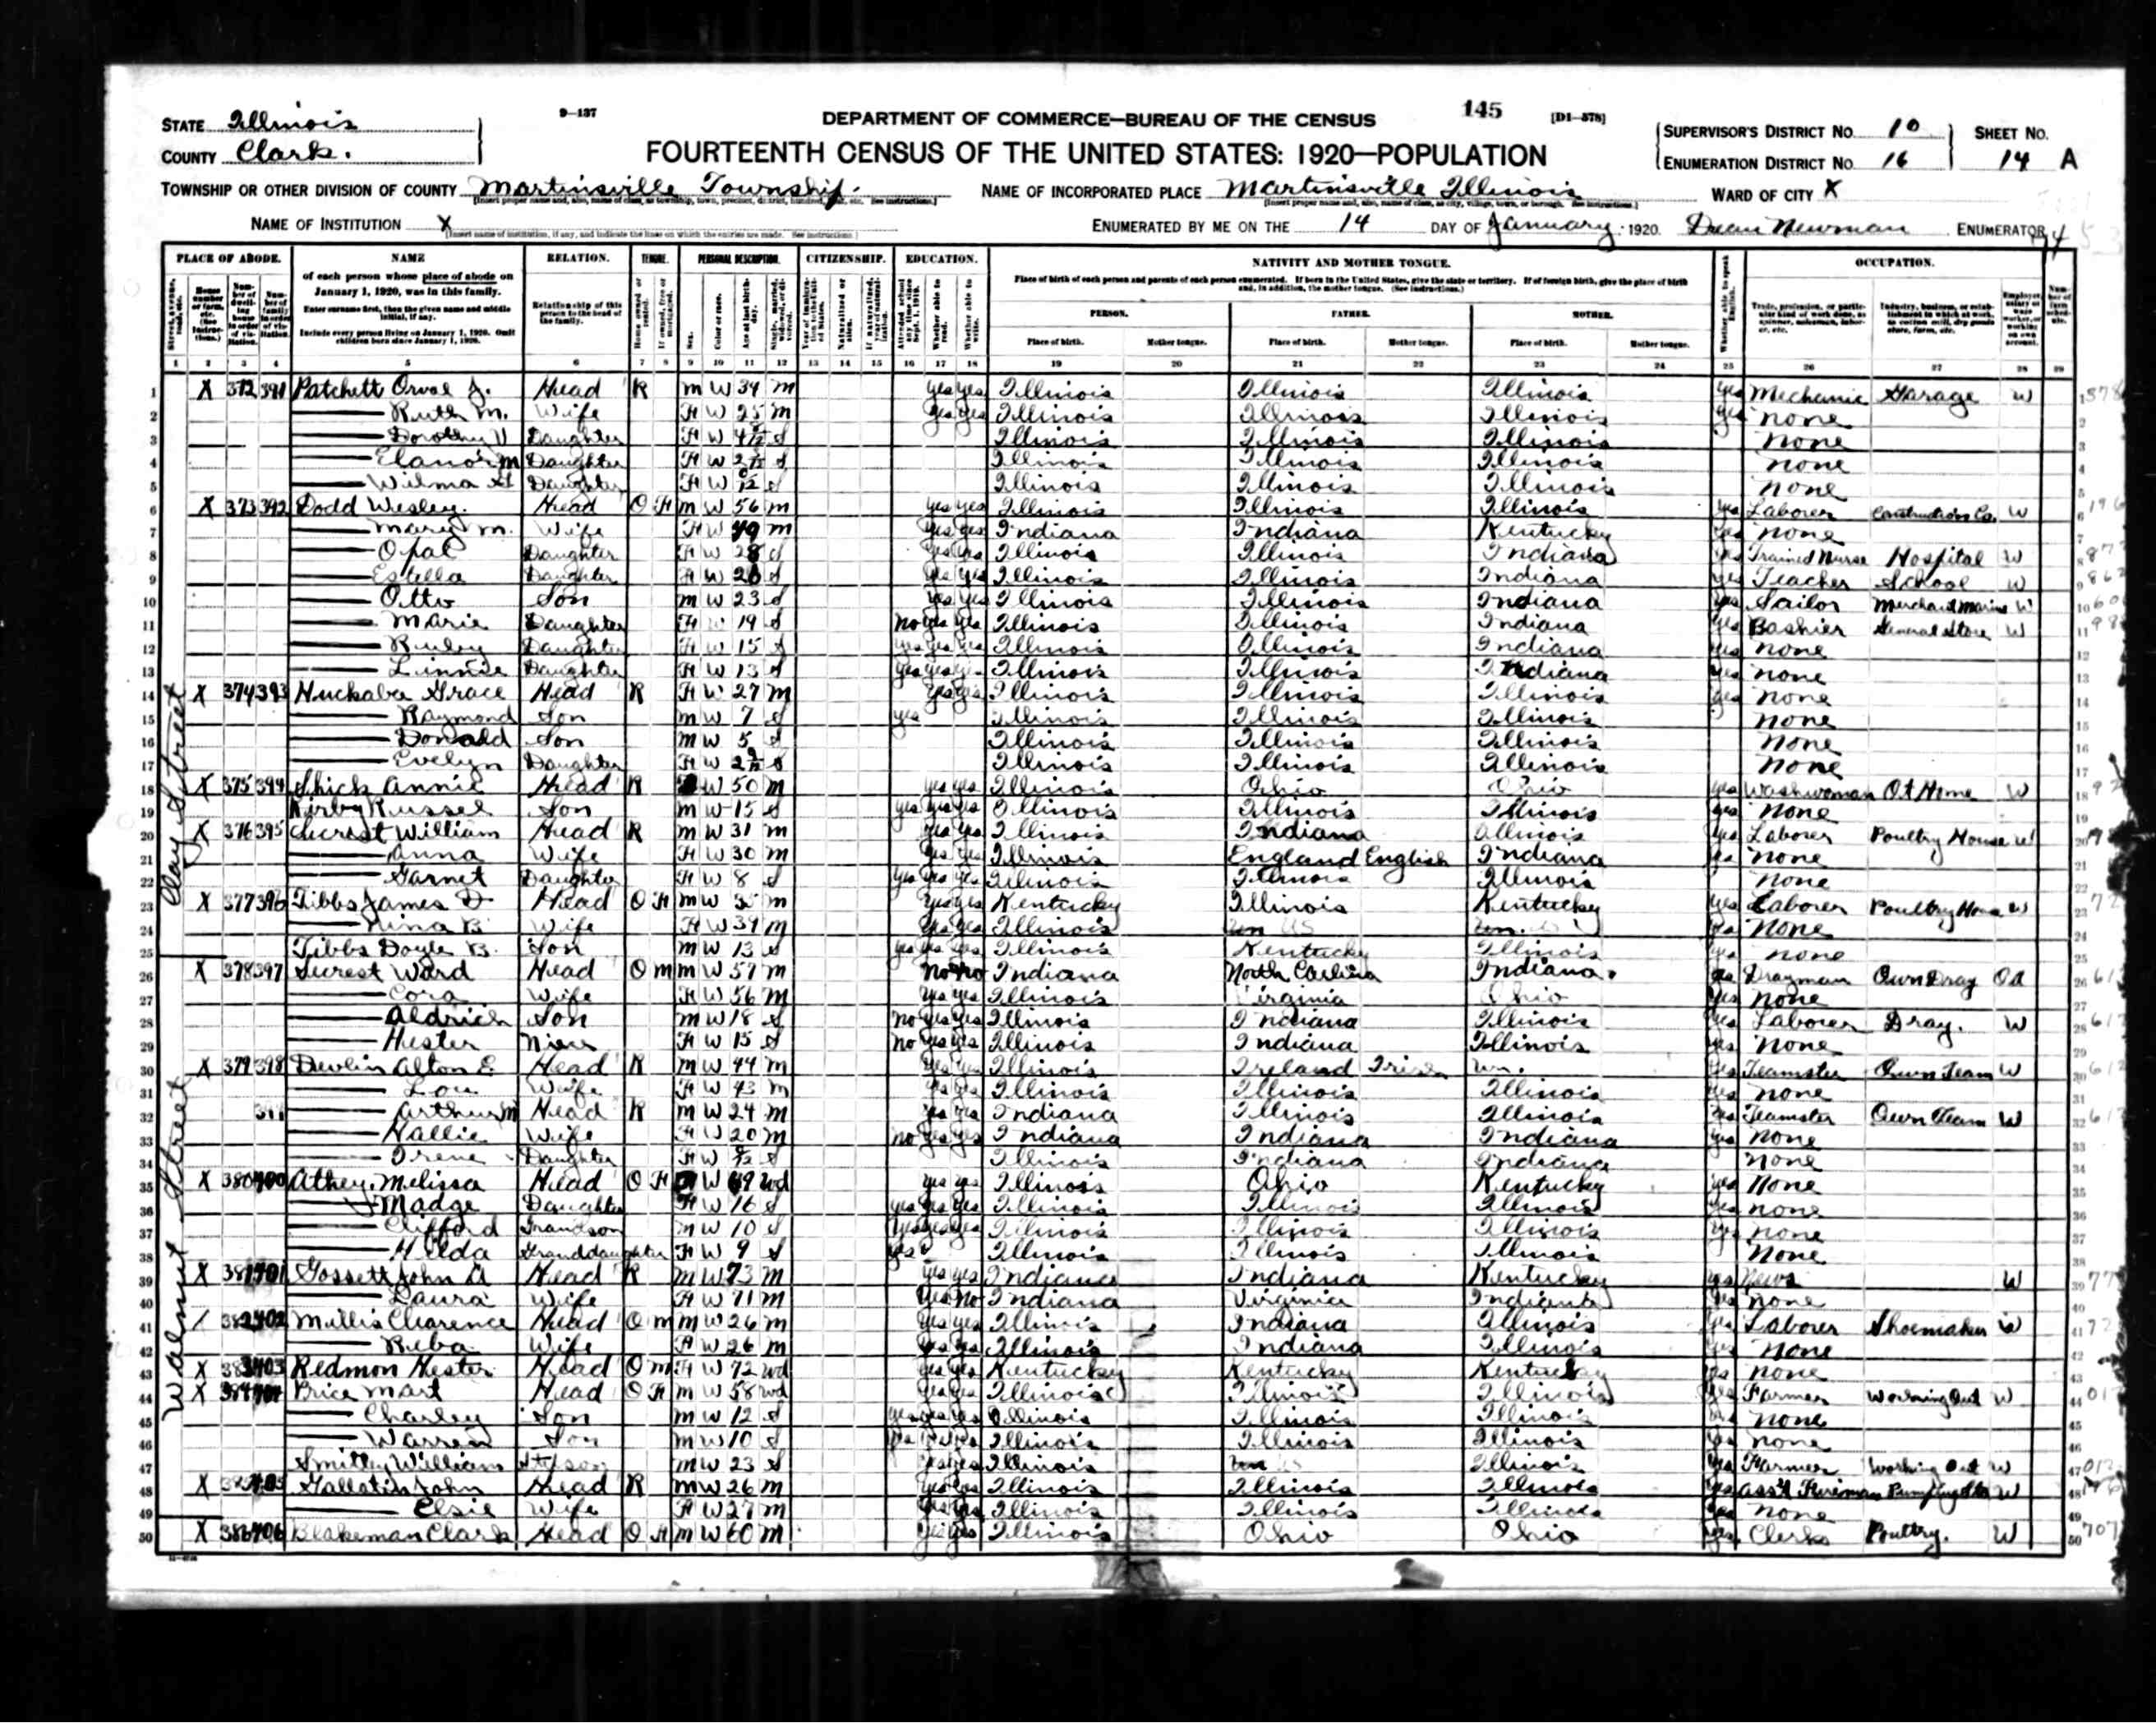 STATE Illinois
COUNTY Clark.
9-137
DEPARTMENT OF COMMERCE—BUREAU OF THE CENSUS
145
[D1-578]
FOURTEENTH CENSUS OF THE UNITED STATES: 1920—POPULATION
SUPERVISOR'S DISTRICT NO. 10
ENUMERATION DISTRICT NO. 16
SHEET NO.
14 A
TOWNSHIP OR OTHER DIVISION OF COUNTY Martinsville Township.
NAME OF INCORPORATED PLACE Martinsville Illinois
WARD OF CITY X
NAME OF INSTITUTION X
ENUMERATED BY ME ON THE 14 DAY OF January, 1920. Newman ENUMERATOR
PLACE OF ABODE. NAME RELATION. TENURE. PERSONAL DESCRIPTION. CITIZENSHIP. EDUCATION. NATIVITY AND MOTHER TONGUE. OCCUPATION.
of each person whose place of abode on January 1, 1920, was in this family.
Enter surname first, then the given name and middle initial, if any.
Include every person living on January 1, 1920. Omit children born since January 1, 1920.
Relationship of this person to the head of the family.
Place of birth of each person and parents of each person enumerated. If born in the United States, give the state or territory. If of foreign birth, give the place of birth and, in addition, the mother tongue. (See instructions.)
PERSON. FATHER. MOTHER.
Place of birth. Mother tongue. Place of birth. Mother tongue. Place of birth. Mother tongue.
1 2 3 4 5 6 7 8 9 10 11 12 13 14 15 16 17 18 19 20 21 22 23 24 25 26 27 28 29
Clay Street
1 X 372 391 Patchett Orval J. Head R M W 34 M yes yes Illinois Illinois Illinois yes Mechanic Garage W
2 — Ruth M. Wife F W 25 M yes yes Illinois Illinois Illinois yes None
3 — Dorothy V Daughter F W S Illinois Illinois Illinois None
4 — Elanor M Daughter F W S Illinois Illinois Illinois None
5 — Wilma Daughter F W S Illinois Illinois Illinois None
6 X 373 392 Dodd Wesley. Head O F M W 56 M yes yes Illinois Illinois Illinois yes Laborer Construction Co. W
7 — Mary M. Wife F W 49 M yes yes Indiana Indiana Kentucky yes None
8 — Opal Daughter F W 28 S yes yes Illinois Illinois Indiana yes Trained Nurse Hospital W
9 — Estella Daughter F W 26 S yes yes Illinois Illinois Indiana yes Teacher School W
10 — Otto Son M W 23 S yes yes Illinois Illinois Indiana yes Sailor Merchant Marine W
11 — Marie Daughter F W 19 S No yes yes Illinois Illinois Indiana yes Cashier General Store W
12 — Ruby Daughter F W 15 S yes yes yes Illinois Illinois Indiana yes None
13 — Linnie Daughter F W 13 S yes yes yes Illinois Illinois Indiana yes None
14 X 374 393 Huckaba Grace Head R F W 27 M yes yes Illinois Illinois Illinois yes None
15 — Raymond Son M W 7 S yes Illinois Illinois Illinois None
16 — Donald Son M W 5 S Illinois Illinois Illinois None
17 — Evelyn Daughter F W S Illinois Illinois Illinois None
18 X 375 394 Shick Annie Head R W 50 M yes yes Illinois Ohio Ohio yes Washwoman At Home W
19 Kirby Russel Son M W 15 S yes yes yes Illinois Illinois Illinois yes None
20 X 376 395 Secrest William Head R M W 31 M yes yes Illinois Indiana Illinois yes Laborer Poultry House W
21 — Anna Wife F W 30 M yes yes Illinois England English Indiana yes None
22 — Garnet Daughter F W 8 S yes yes yes Illinois Illinois Illinois None
23 X 377 396 Tibbs James D Head O F M W M yes yes Kentucky Illinois Kentucky yes Laborer Poultry House W
24 — Nina B. Wife F W 39 M yes yes Illinois Un Un. yes None
25 Tibbs Doyle B. Son M W 13 S yes yes yes Illinois Kentucky Illinois yes None
26 X 378 397 Secrest Ward Head O M M W 57 M No No Indiana North Carolina Indiana. yes Drayman Own Dray OA
27 — Cora Wife F W 56 M yes yes Illinois Virginia Ohio yes None
28 — Aldrich Son M W 18 S No yes yes Illinois Indiana Illinois yes Laborer Dray. W
29 — Hester Niece F W 15 S No yes yes Illinois Indiana Illinois yes None
Walnut Street
30 X 379 398 Devlin Alton E. Head R M W 44 M yes yes Illinois Ireland Irish Un. yes Teamster Own Team W
31 — Lou Wife F W 43 M yes yes Illinois Illinois Illinois yes None
32 — Arthur M Head R M W 24 M yes yes Indiana Illinois Illinois yes Teamster Own Team W
33 — Hallie Wife F W 20 M No yes yes Indiana Indiana Indiana yes None
34 — Irene Daughter F W S Illinois Indiana Indiana None
35 X 380 400 Athey, Melissa Head O F W Wd yes yes Illinois Ohio Kentucky yes None
36 — Madge Daughter F W 16 S yes yes yes Illinois Illinois Illinois yes None
37 — Clifford Grandson M W 10 S yes yes yes Illinois Illinois Illinois yes None
38 — Hilda Granddaughter F W 9 S yes Illinois Illinois Illinois None
39 X 381 401 Gossett John A Head R M W 73 M yes yes Indiana Indiana Kentucky yes News W
40 — Laura Wife F W 71 M yes No Indiana Virginia Indiana yes None
41 382 402 Millis Clarence Head O M M W 26 M yes yes Illinois Indiana Illinois yes Laborer Shoemaker W
42 — Reba Wife F W 26 M yes yes Illinois Indiana Illinois yes None
43 X 383 403 Redmon Hester Head O M F W 72 Wd yes yes Kentucky Kentucky Kentucky yes None
44 X 384 404 Price Mart Head O F M W 58 Wd yes yes Illinois Illinois Illinois yes Farmer Working Out W
45 — Charley Son M W 12 S yes yes yes Illinois Illinois Illinois yes None
46 — Warren Son M W 10 S yes yes yes Illinois Illinois Illinois yes None
47 Smitley William Stepson M W 23 S yes yes Illinois Un Illinois yes Farmer Working Out W
48 X 385 405 Gallatin John Head R M W 26 M yes yes Illinois Illinois Illinois yes Ass't Fireman W
49 — Elsie Wife F W 27 M yes yes Illinois Illinois Illinois yes None
50 X 386 406 Blakeman Clark Head O F M W 60 M yes yes Illinois Ohio Ohio yes Clerk Poultry. W